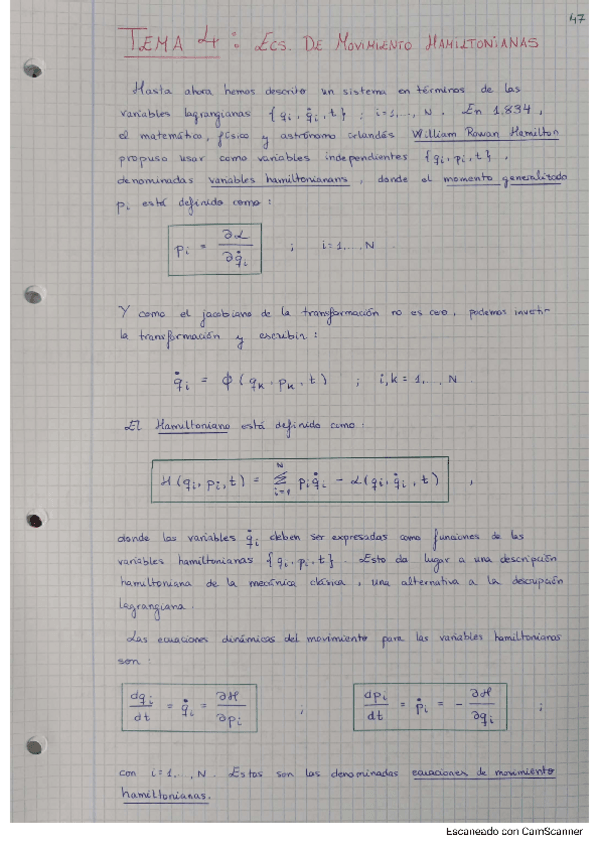 47
TEMA 4 : ECS. DE MOVIMIENTO HAMILTONIANAS
Hasta ahora hemos descrito un sistema en términos de las
variables lagrangianas {qi, q̇i, t} ; i=1,..., N. En 1.834,
el matemático, físico y astrónomo irlandés William Rowan Hamilton
propuso usar como variables independientes {qi, pi, t},
denominadas variables hamiltonianans, donde el momento generalizado
pi está definido como :
pi = ∂L/∂q̇i ; i=1,...,N.
Y como el jacobiano de la transformación no es cero, podemos invertir
la transformación y escribir :
q̇i = ϕ(qk, pk, t) ; i,k = 1,..., N
El Hamiltoniano está definido como :
H(qi, pi, t) = Σ_{i=1}^{N} pi q̇i - L(qi, q̇i, t) ,
donde las variables q̇i deben ser expresadas como funciones de las
variables hamiltonianas {qi, pi, t}. Esto da lugar a una descripción
hamiltoniana de la mecánica clásica, una alternativa a la descripción
lagrangiana.
Las ecuaciones dinámicas del movimiento para las variables hamiltonianas
son :
dqi/dt = q̇i = ∂H/∂pi ; dpi/dt = ṗi = - ∂H/∂qi ;
con i=1,..., N. Estas son las denominadas ecuaciones de movimiento
hamiltonianas.
Escaneado con CamScanner